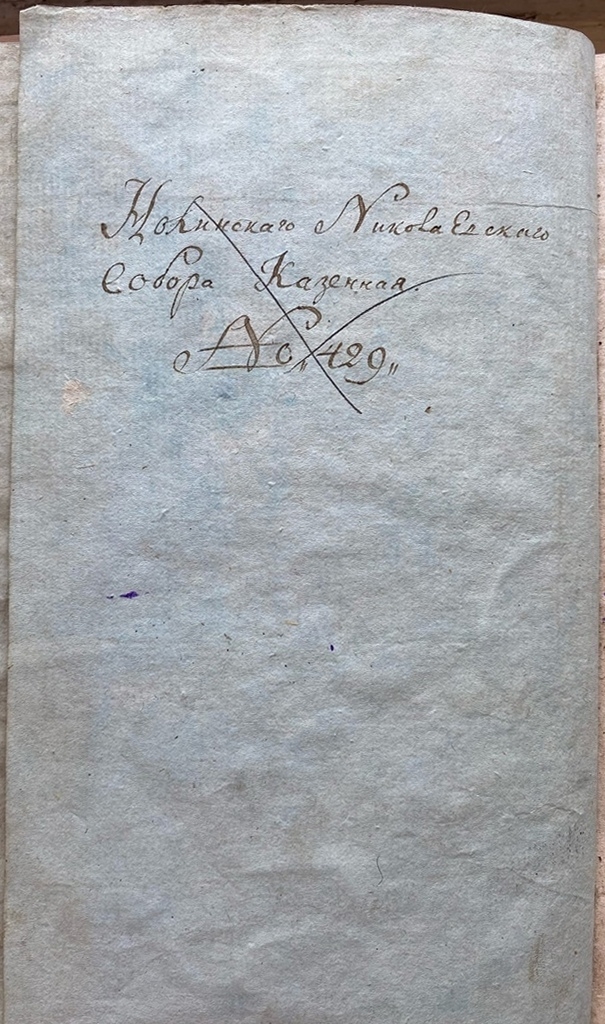 Нолинскаго Николаевскаго
Собора Казенная.
No „429„